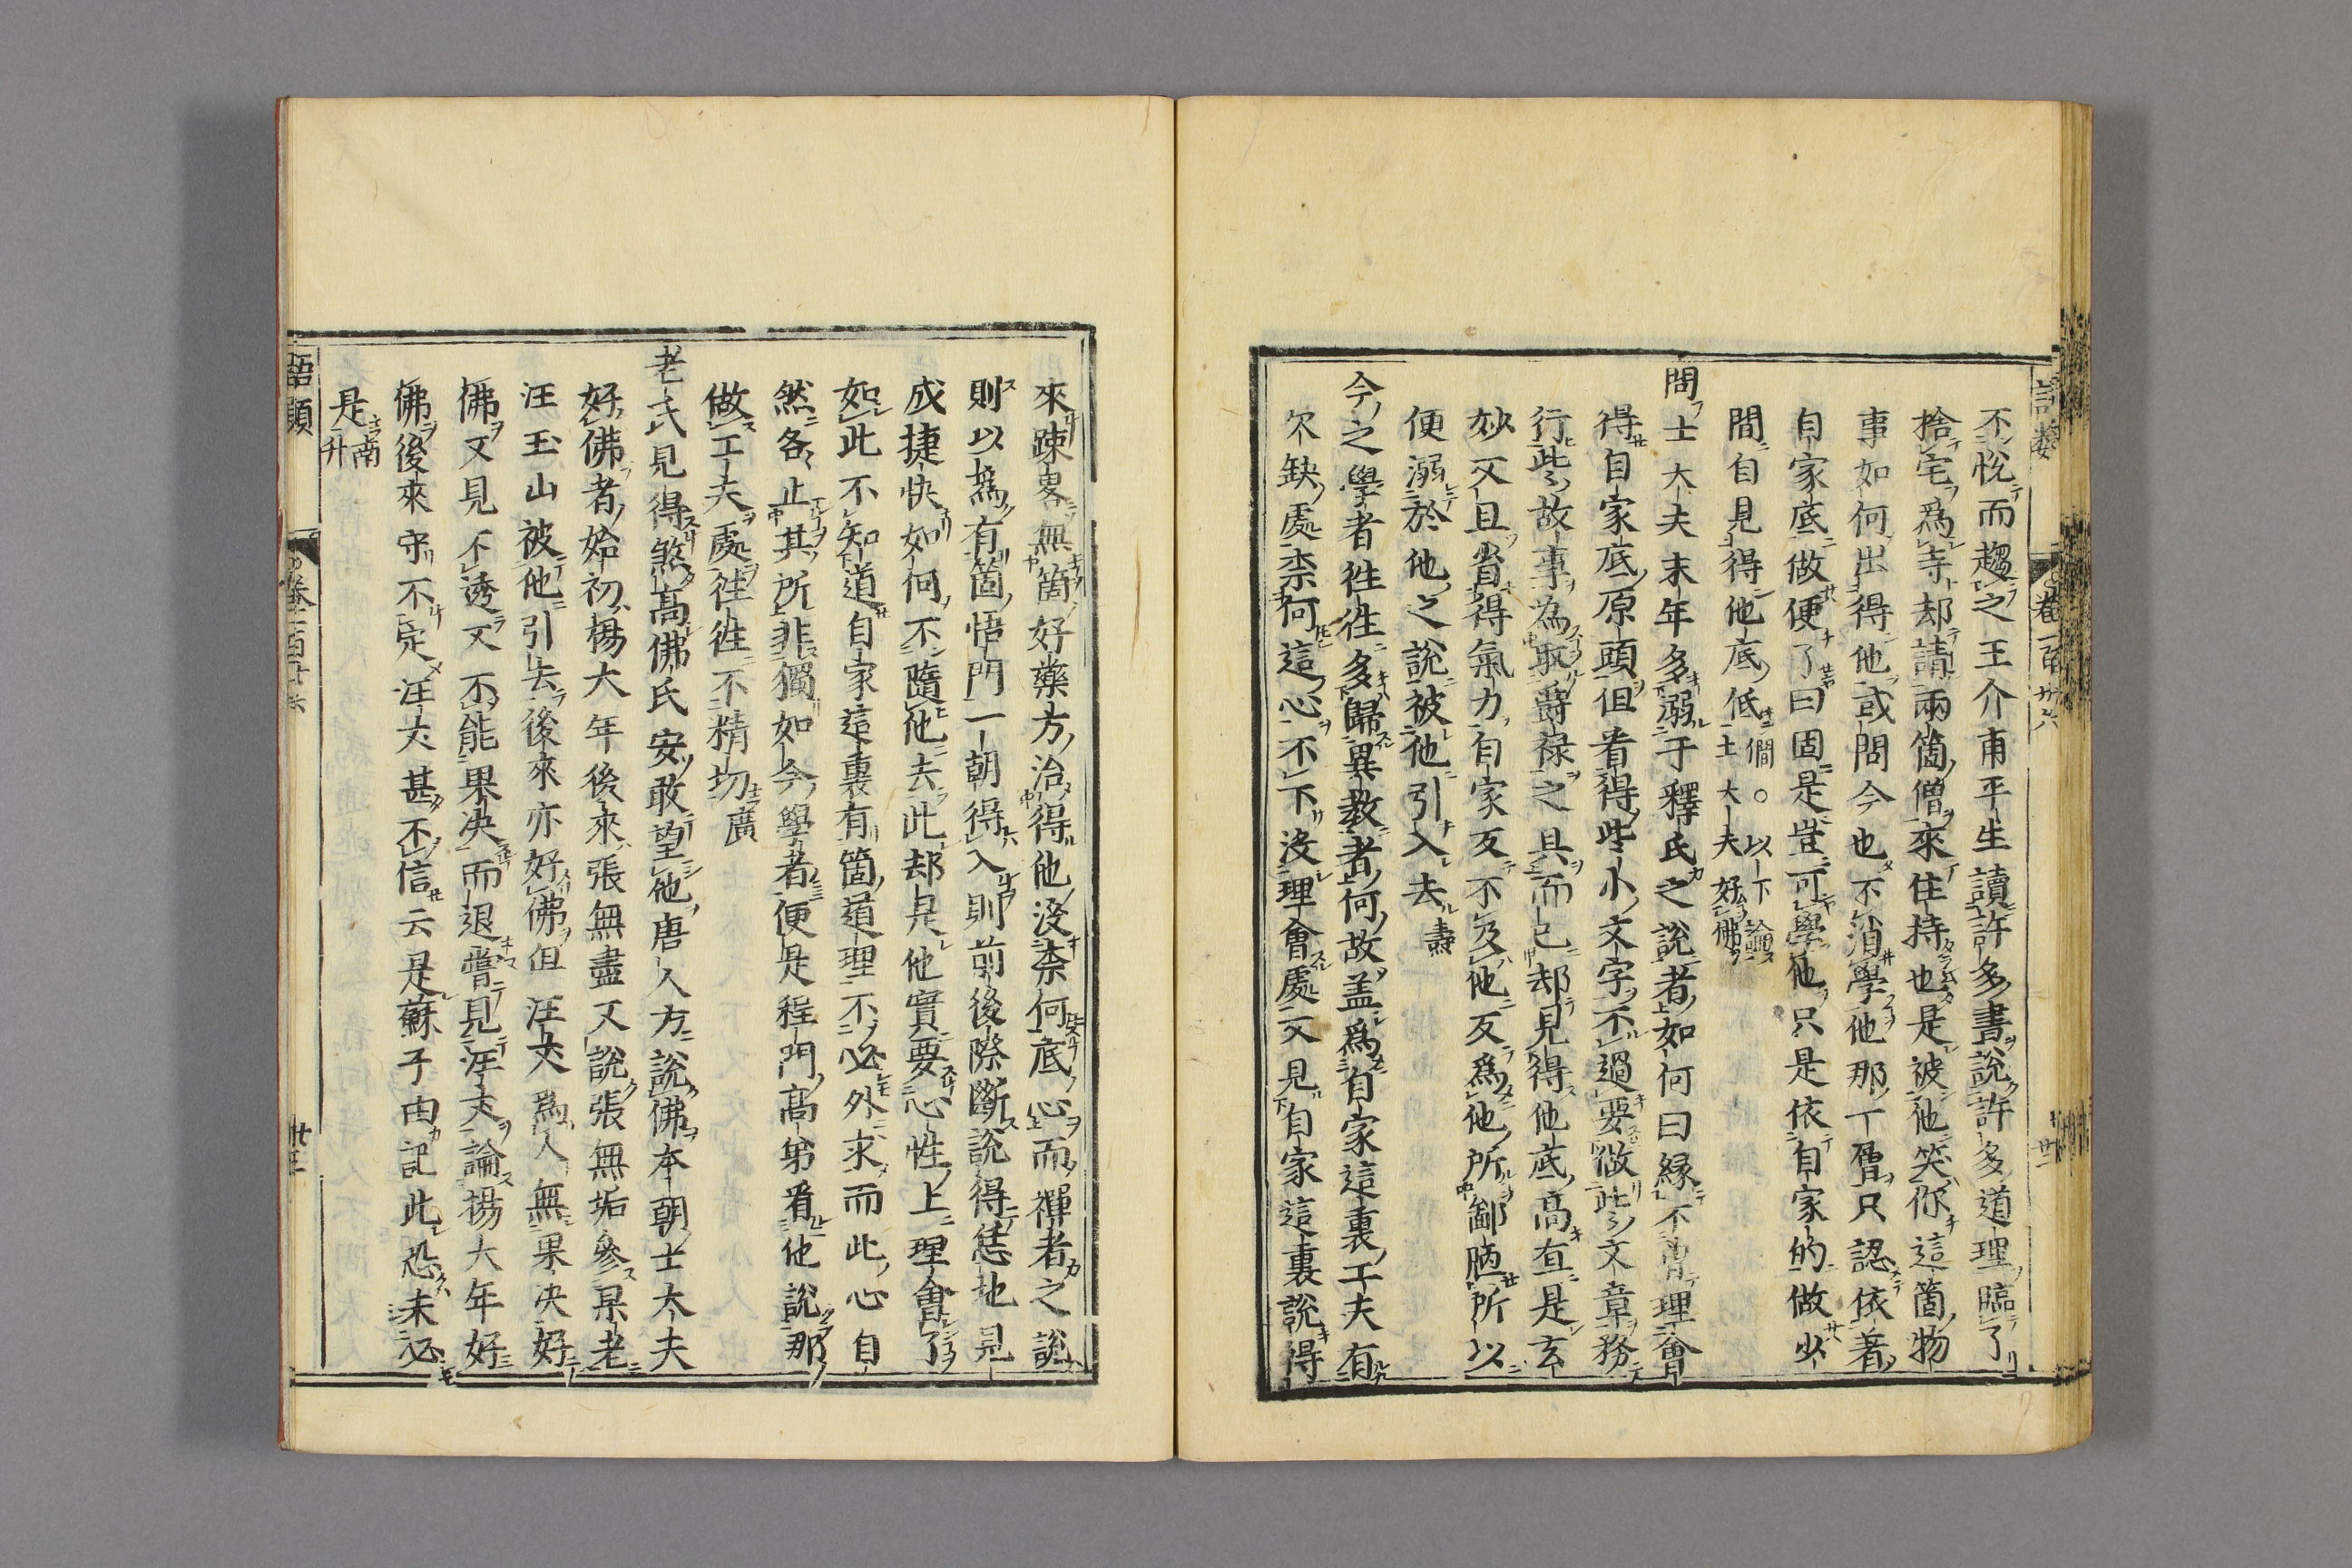 不悅而趨之王介甫平生讀許多書說許多道理臨了
捨宅爲寺却請兩箇僧來住持也是被他笑你這箇物
事如何出得他或問今也不消學他那一層只認依著
自家底做便了曰固是豈可學他只是依自家的做少
間自見得他底低僩○以下論士大夫好佛
問士大夫末年多溺于釋氏之說者如何曰緣不曾理會
得自家底原頭但看得些小文字不過要做些文章務
行些故事為取爵祿之具而已却見得他底高直是玄
妙又且省得氣力自家反不及他反爲他所鄙陋所以
便溺於他之說被他引入去燾
今之學者往往多歸異教者何故盖爲自家這裏工夫有
欠缺處柰何這心不下沒理會處又見自家這裏說得
來踈畧無箇好藥方治得他沒柰何底心而禪者之說
則以爲有箇悟門一朝得入則前後際斷說得恁地見
成捷快如何不隨他去此却是他實要心性上理會了
如此不知道自家這裏有箇道理不必外求而此心自
然各止其所非獨如今學者便是程門高弟看他說那
做工夫處往往不精切廣
老氏見得煞高佛氏安敢望他唐人方說佛本朝士大夫
好佛者始初楊大年後來張無盡又說張無垢參杲老
汪玉山被他引去後來亦好佛但汪丈爲人無果決好
佛又見不透又不能果決而退嘗見汪丈論楊大年好
佛後來守不定汪丈甚不信云是蘇子由記此恐未必
是南升
語類
卷一百廿六